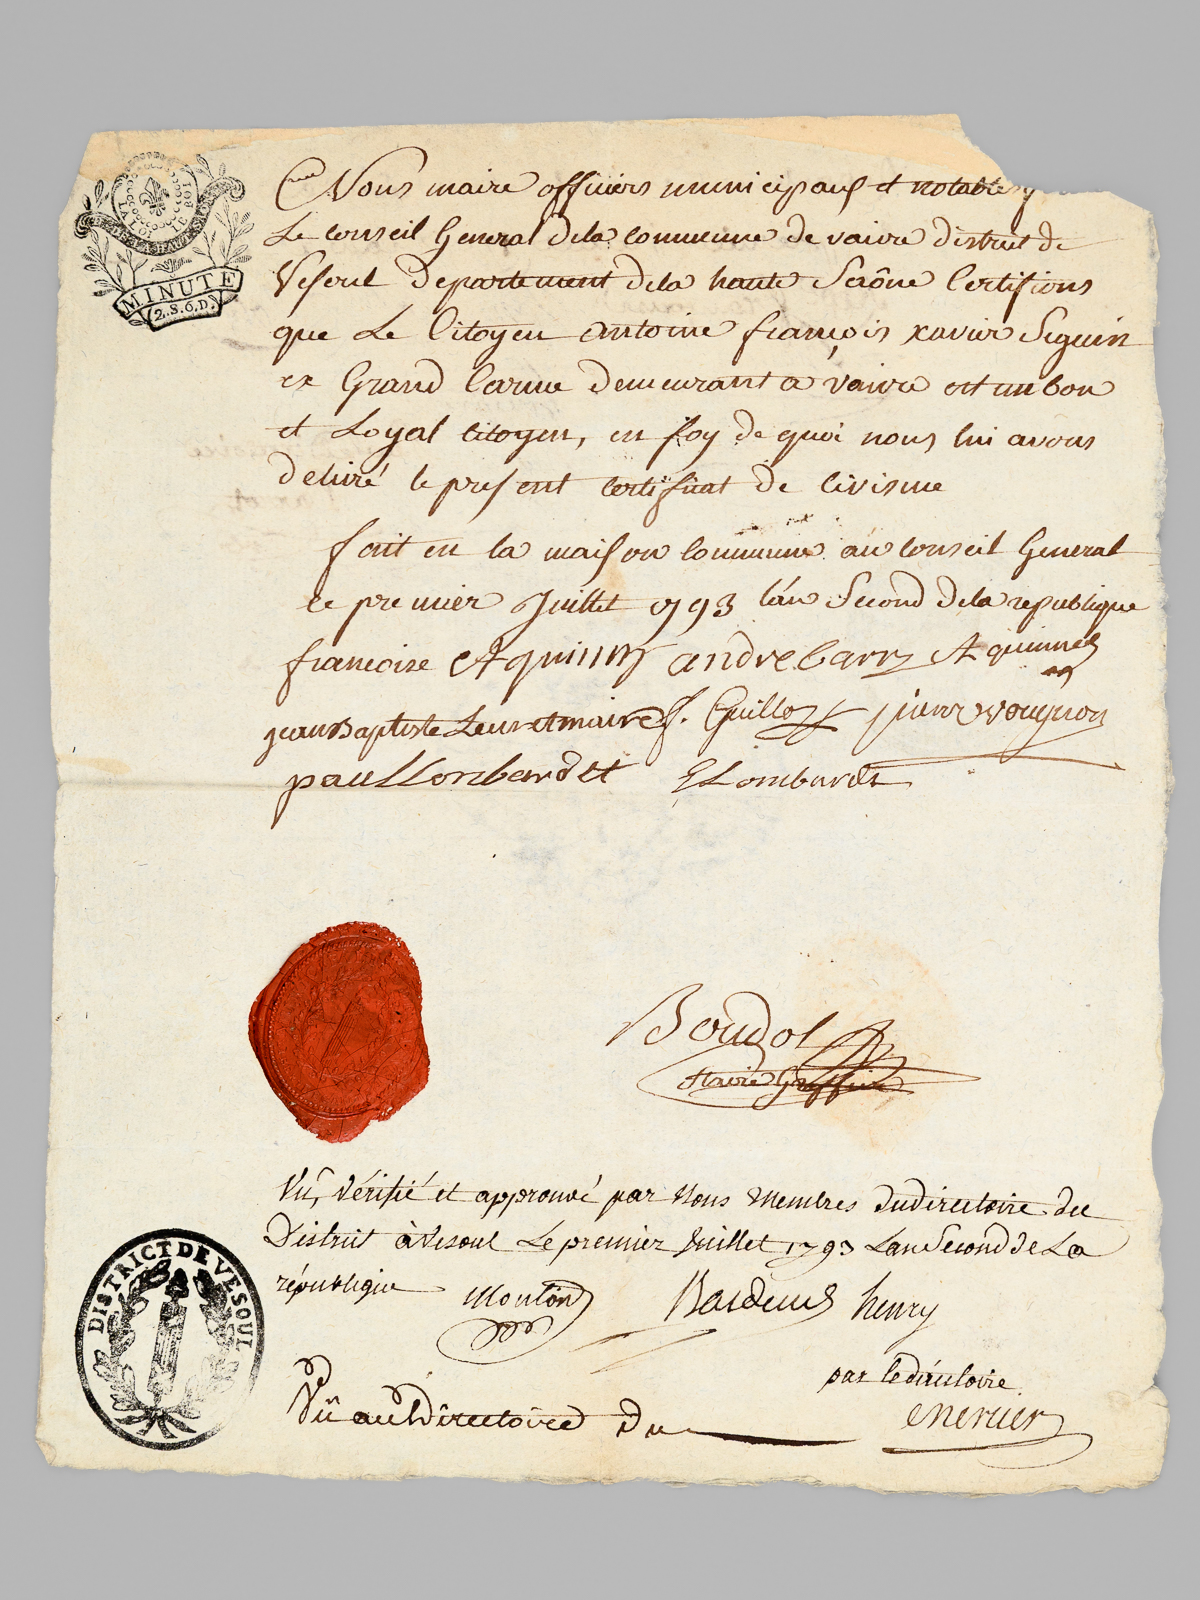 LA LOI LE ROI
MINUTE
2.S.6.D.
Nous maire officiers municipaus et notables
Le conseil General dela commune de vaivre district de
Vesoul departement dela haute Saône Certifions
que Le Citoyen antoine françois xavier Seguin
ex Grand Carme demeurant a vaivre est un bon
et Loyal citoyen, en foy de quoi nous lui avons
delivré le present certificat de civisme
fait en la maison commune au conseil General
ce premier Juillet 1793 l'an Second dela republique
francoise andre barry
jean Baptiste maire J. Guilloz pierre vougnon
paul Lombardet G Lombardet
Boudot
Vû, vérifié et approuvé par Nous Membres du directoire du
District à Vesoul Le premier Juillet 1793 Lan Second de La
république Henry
par le directoire
DISTRICT DE VESOUL
Vû au Directoire Du Mercier